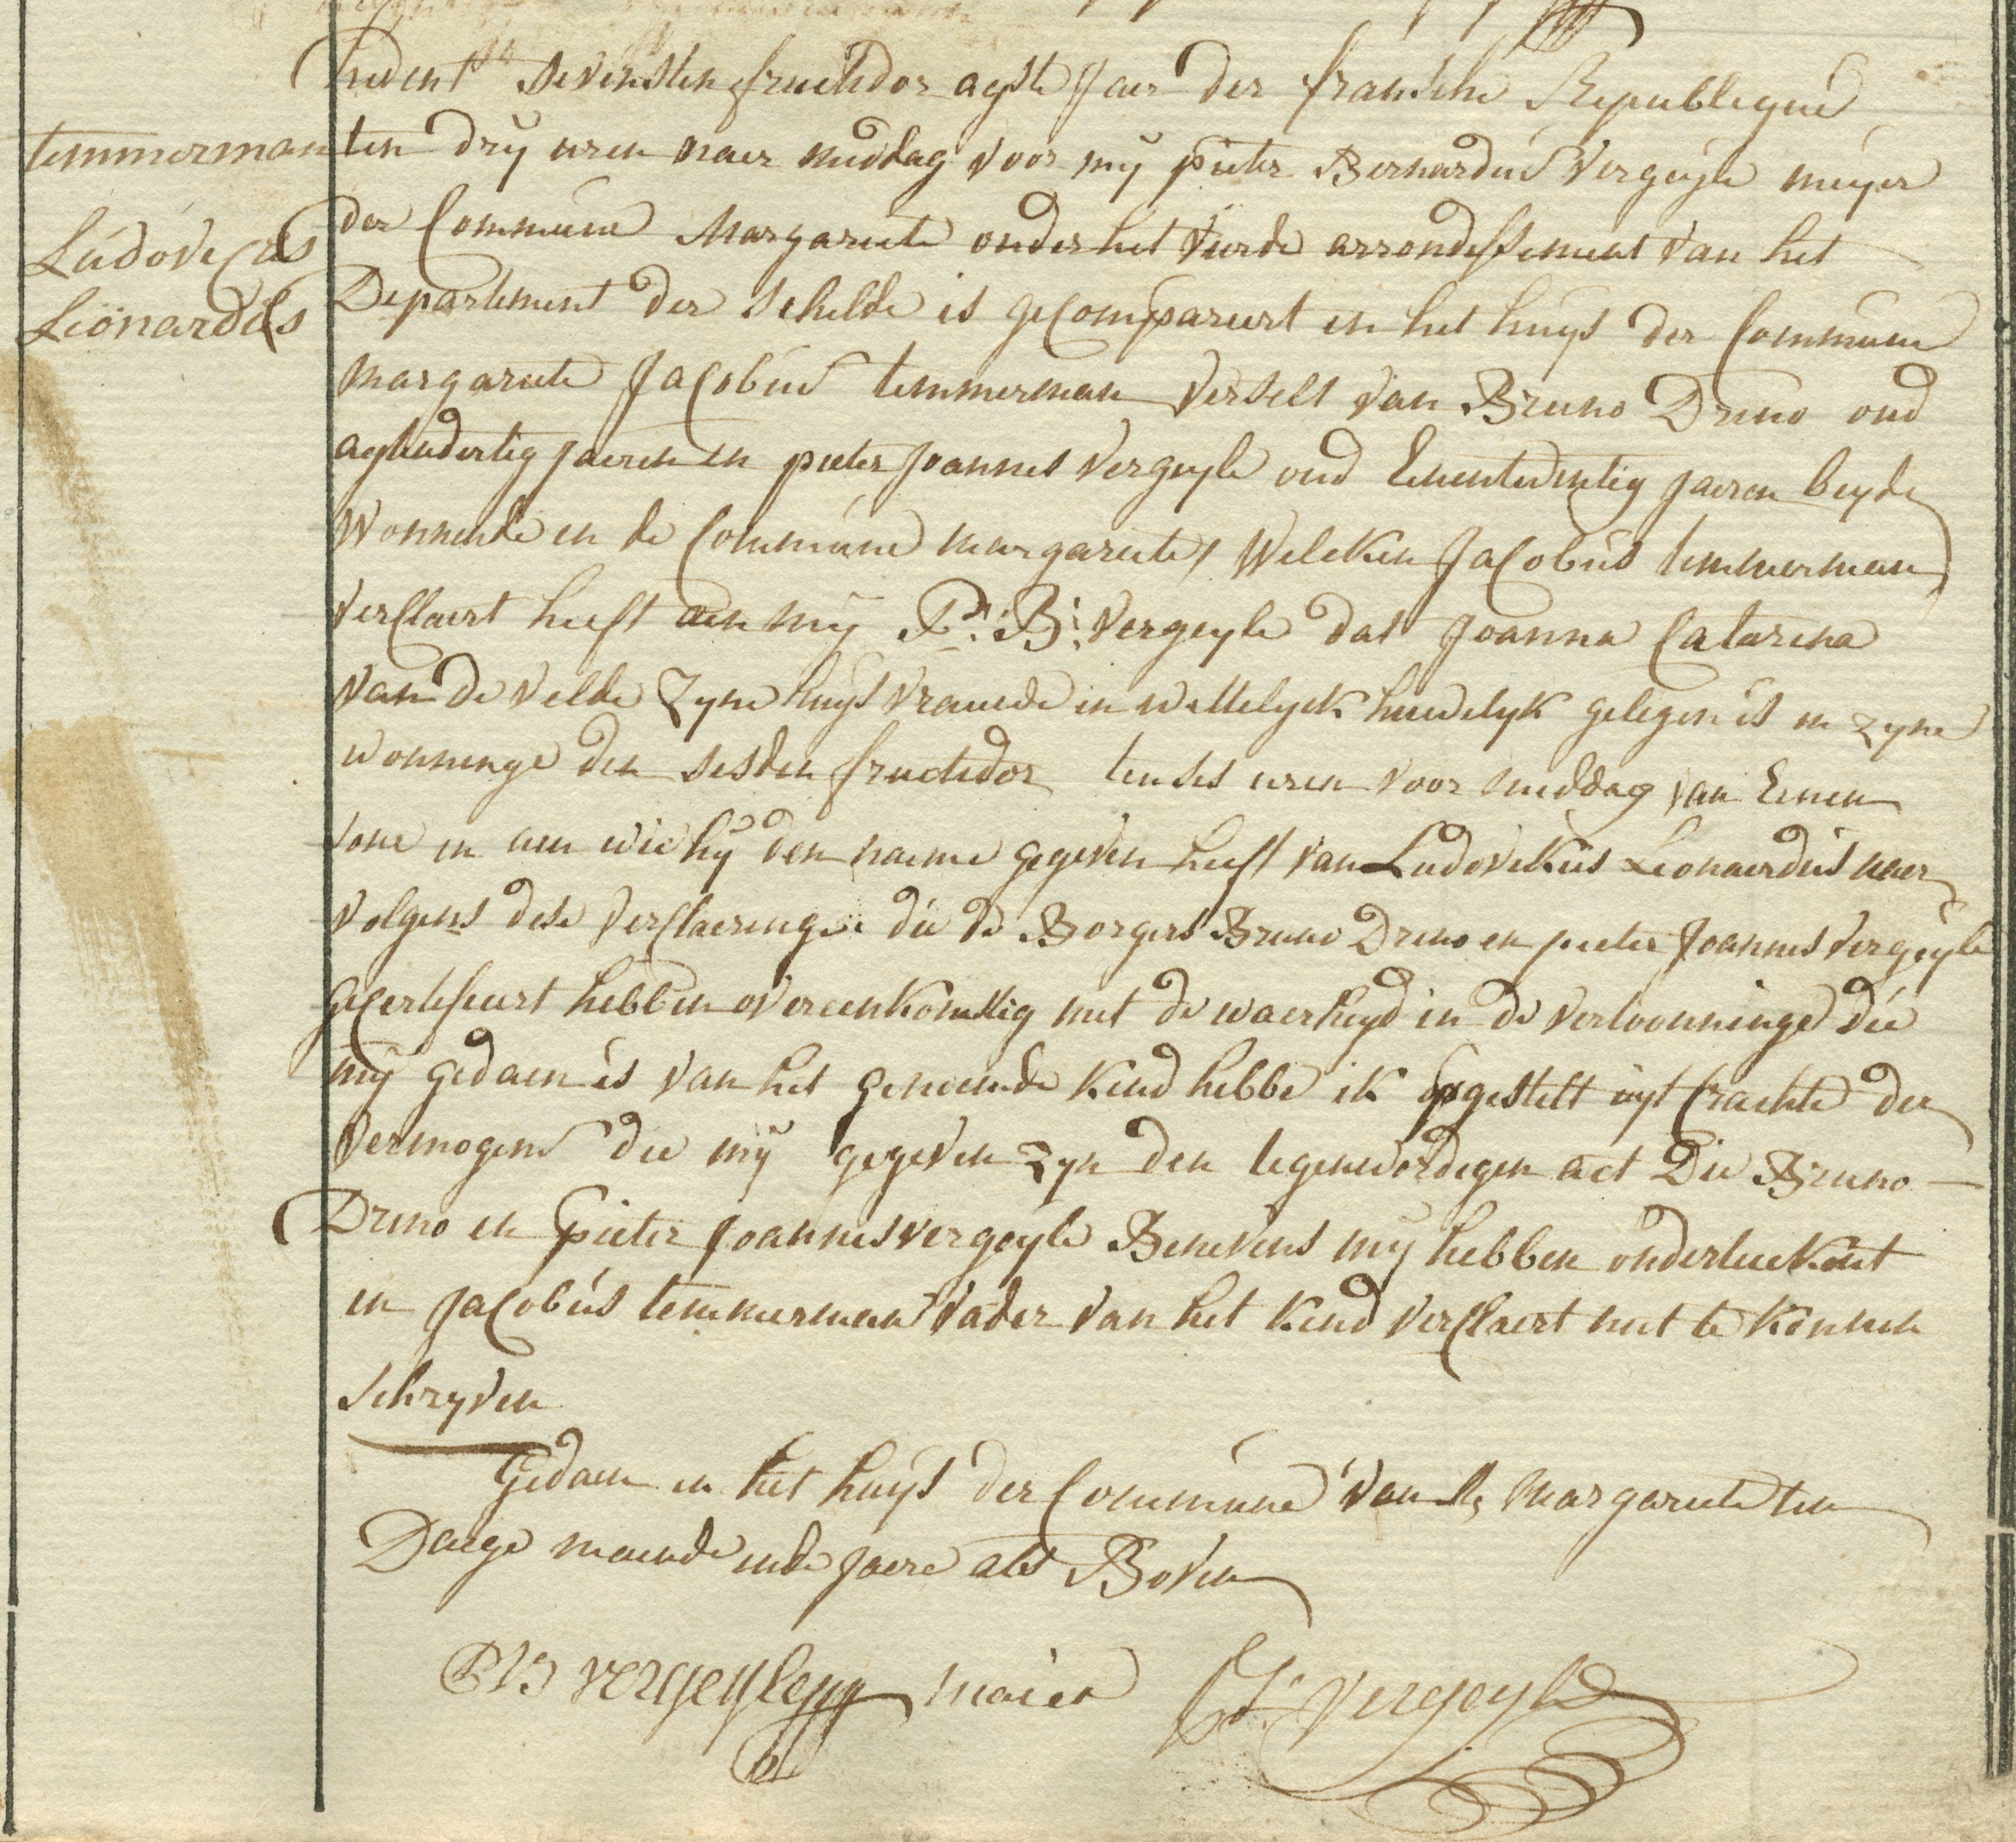 temmerman
Ludovecus
Leonardus
hedent sevensten fructidor agste Jaer der fransche Republique
ten dry uren naer middag voor mij pieter Bernardus Vergeyle meyer
der Commune Margariete onder het vierde arrondissement van het
Departement der Schelde is geCompareert in het huys der Commune
margariete JaCobus temmerman Verselt van Bruno Drino oud
aghtendertig jaeren en pieter Joannes Vergeyle oud Eenentwentig jaeren beyde
Wonnende in de Commune margariete, Welcken JaCobus temmerman
VerClaert heeft aen mij Pr: B: Vergeyle dat Joanna Catarina
van de Velde Zyne huysvrauwe in wettelyck huwelyk gelegen is in zyne
wonninge den sesden fructidor ten ses uren voor middag van Eenen
sone en aen wie hij den naeme gegeven heeft van Ludovikus Leonaerdus naer
volgens dese VerClaeringe die de Borgers Bruno Drino en pieter Joannes Vergeyle
geCertifieert hebben overeenkomstig met de waerheyd en de vertoonninge die
mij gedaen is van het genoemde kind hebbe ik opgestelt uyt Crachte der
Vermogens die mij gegeven zyn den tegenwordigen act Die Bruno
Drino en Pieter Joannes vergeyle Benevens mij hebben onderteekent
en JaCobus temmerman Vader van het kind VerClaert niet te konnen
schryven
Gedaen in het huys der Commune van Ste Margariete ten
Daege maende ende jaere als Boven
PB vergeyle maier PJ: Vergeyle